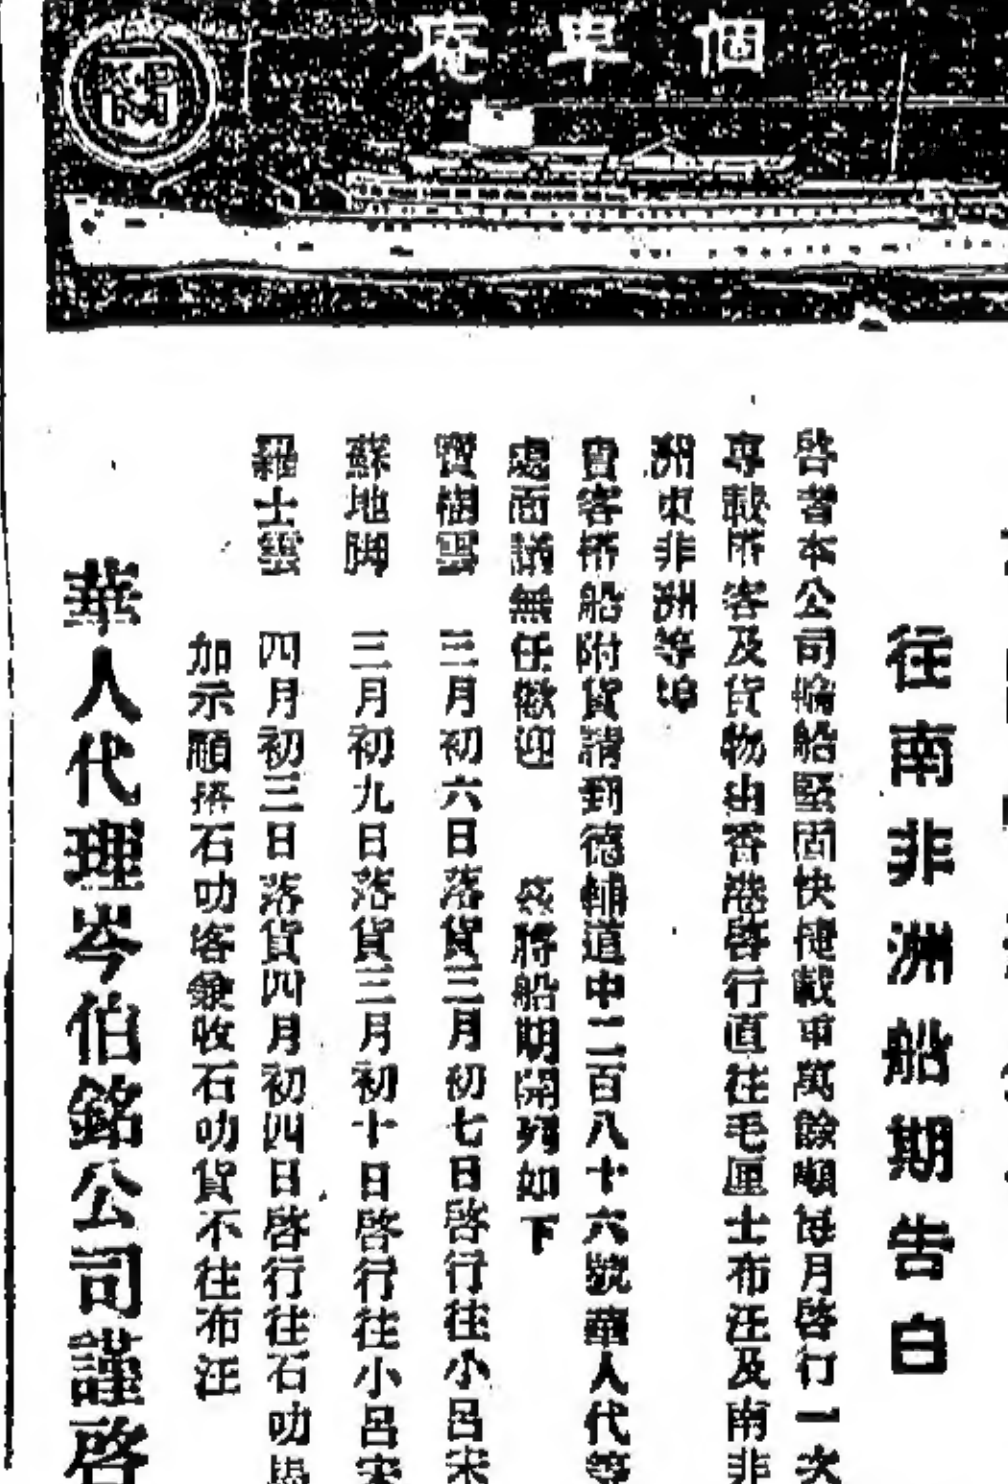 個卑庵
往南非洲船期告白
啓者本公司輪船堅固快捷載重萬餘噸每月啓行一次
專載搭客及貨物由香港啓行直往毛厘士布汪及南非
洲東非洲等埠
貴客搭船附貨請到德輔道中二百八十六號華人代等
處面議無任歡迎 茲將船期開列如下
寶樹雲 三月初六日落貨三月初七日啓行往小呂宋
蘇地脚 三月初九日落貨三月初十日啓行往小呂宋
羅士雲 四月初三日落貨四月初四日啓行往石叻
加示顧搭石叻客兼收石叻貨不往布汪
華人代理岑伯銘公司謹啓